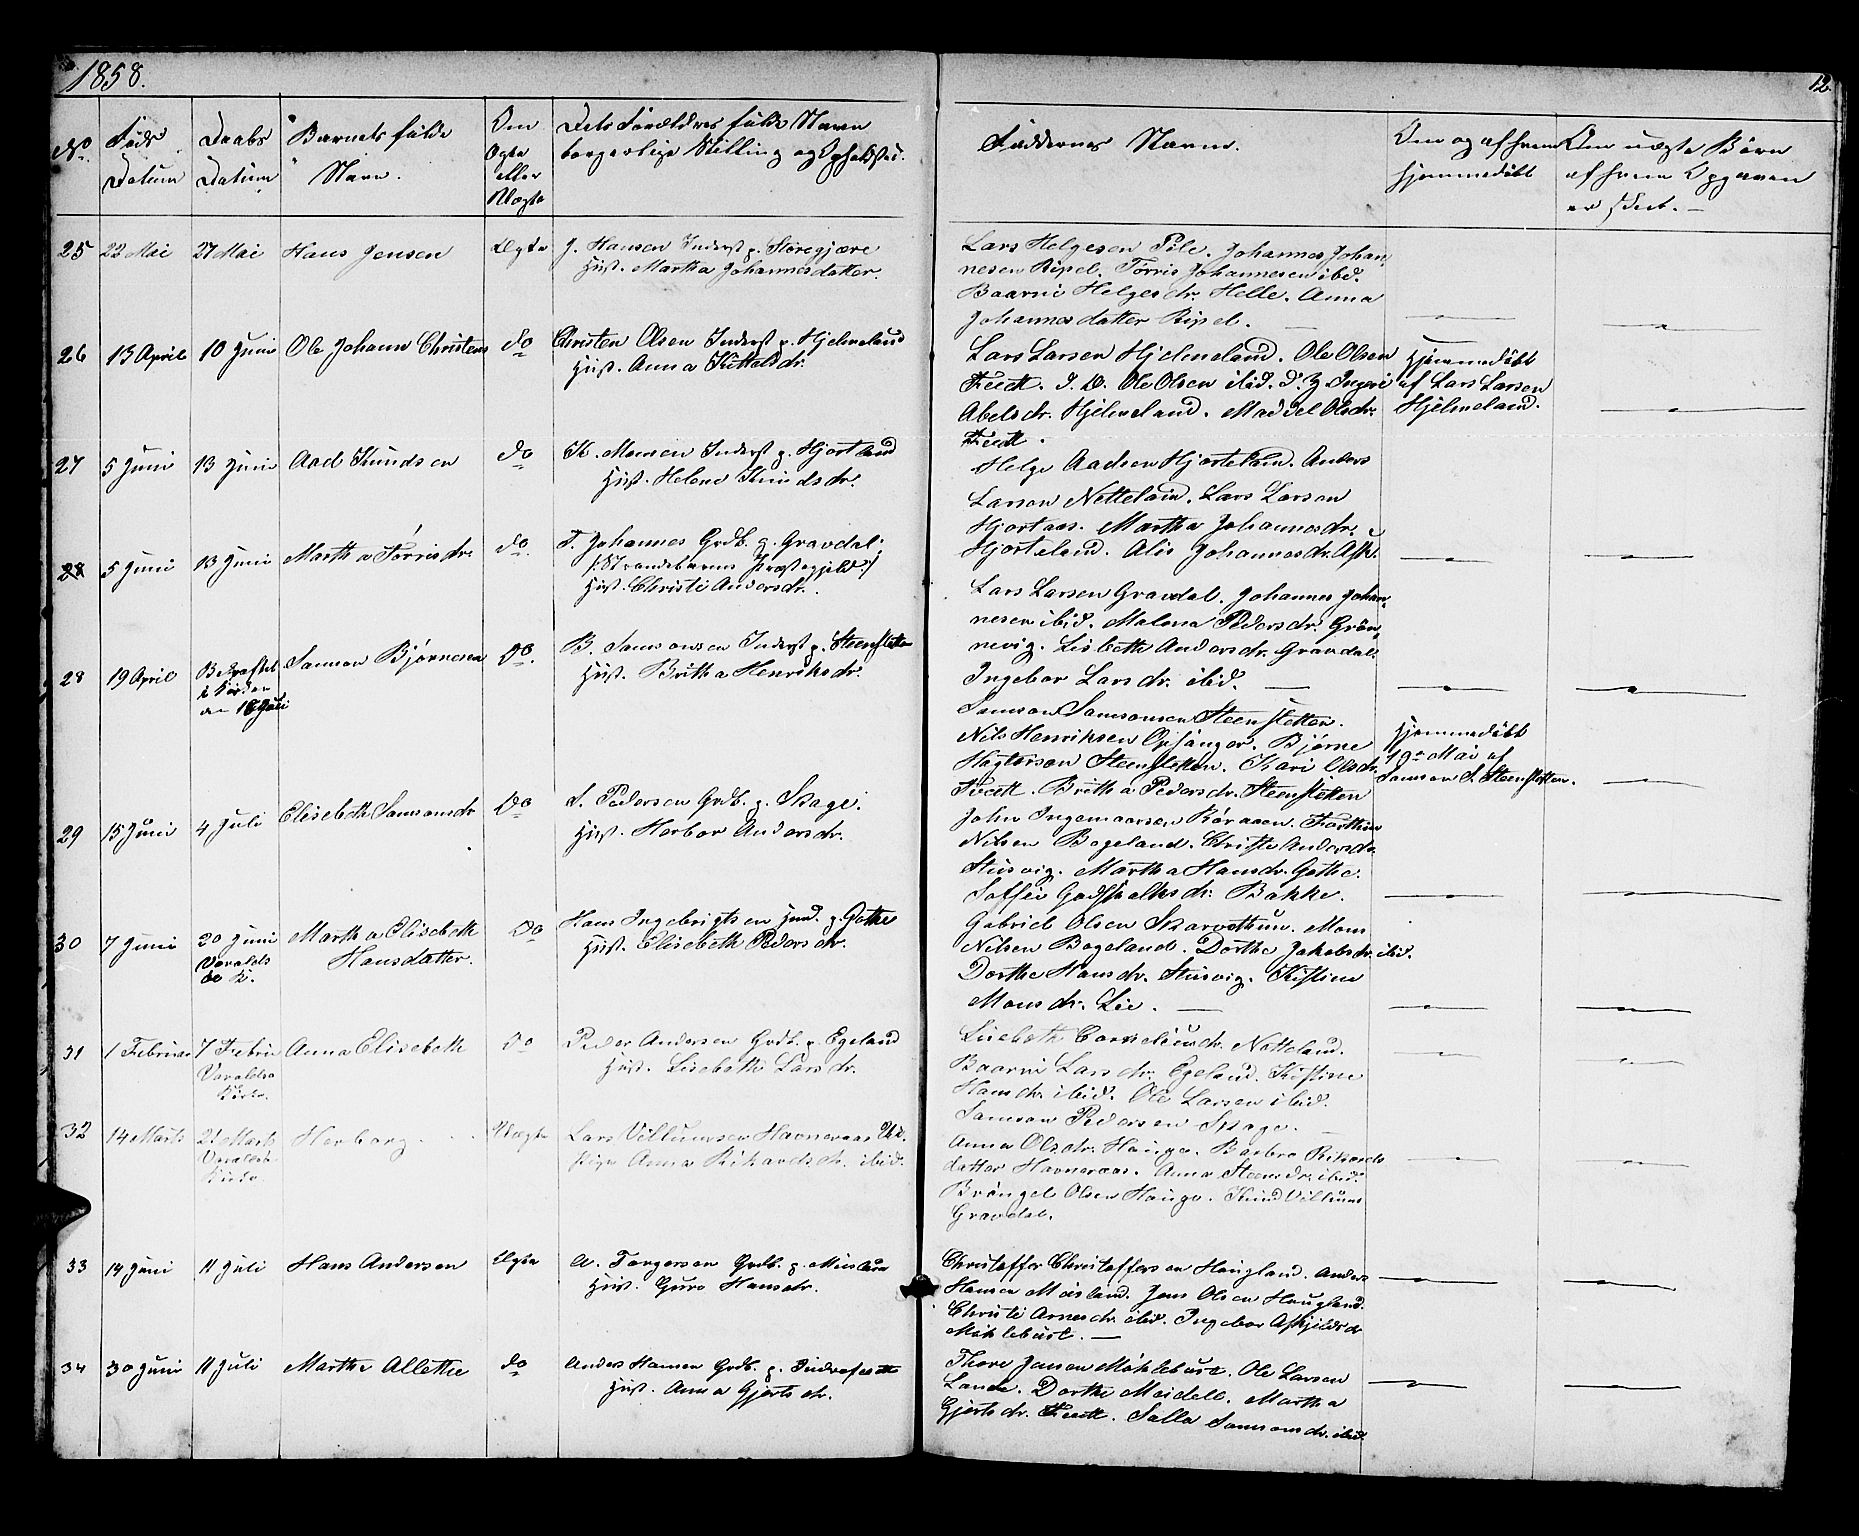 1858.
12
No.
Föds Datum
Daabs Datum
Barnets fulde Navn.
Om Ægte eller Uægte
Dets Forældres fulde Navn
borgerlige Stilling og Opholdsted.
Faddernes Navne.
Om og af hvem
hjemmedöbt
Om uægte Börn
af hvem Opgaven
er skeet.
25 22 Mai 27 Mai Hans Jensen Ægte J. Hansen Inderst p. Störegjære
Hust. Martha Johannesdatter.
Lars Helgesen Pile. Johannes Johan-
nesen Ripel. Törris Johannesen ibid.
Baarni Helgesdr. Helle. Anna
Johannesdatter Ripel. —
26 13 April 10 Juni Ole Johann Christens do Christen Olsen Inderst p. Hjelmeland
Hust. Anna Kittelsdr.
Lars Larsen Hjelmeland. Ole Olsen
Feedt. d. Æ. Ole Olsen ibid. d. y. Ingeri
Abelsdr. Hjelmeland. Maddel Olsdr.
Feedt.
Hjemmedöbt
af Lars Larsen
Hjelmeland.
27 5 Juni 13 Juni Aad Knudsen do K. Monsen Inderst p. Hjortland
Hust. Helene Knudsdr.
Helge Aadsen Hjorteland. Anders
Larsen Netteland. Lars Larsen
Hjortaas. Martha Johannesdr.
Hjorteland. Alis Johannesdr. Ask.
28 5 Juni 13 Juni Martha Törrisdr. do T. Johannes Grdb. p. Gravdal.
/:Strandebarms Præstegjeld:/
Hust. Christi Andersdr.
Lars Larsen Gravdal. Johannes Johan-
nesen ibid. Malena Pedersdr. Grön-
nevig. Lisbeth Andersdr. Gravdal.
Ingebor Larsdr. ibid. —
28 19 April Bekræftet
i Kirken
den 18 Juli Samson Björnesen do. B. Samsonsen Inderst p. Steensletten
Hust. Britha Henriksdr.
Samson Samsonsen Steensletten.
Nils Henriksen Opsanger. Björne
Hagtorsen Steensletten. Kari Olsdr.
Feedt. Britha Pedersdr. Steensletten
Hjemmedöbt
19de Mai af
Samson S. Steensletten.
29 15 Juni 4 Juli Elisebeth Samsonsdr do S. Pedersen Grdb. p. Skage.
Hust. Herbor Andersdr.
John Ingemaarsen Röraaen. Torthin
Nilsen Bogeland. Christi Andersdr.
Stusvig. Martha Hansdr. Gothe.
Soffie Godskalksdr. Bakke.
30 7 Juni 20 Juni
Varalds
öe K. Martha Elisebeth
Hansdatter. do Hans Ingebrigtsen Ind. p. Gothe
Hust. Elisebeth Pedersdr.
Gabriel Olsen Skarvethun. Mons
Nilsen Bogeland. Dorthe Jakobsdr. ibid.
Dorthe Hansdr. Stusvig. Kistine
Monsdr. Lie. —
31 1 Februar 7 Febru
Varaldsö
Kirke. Anna Elisebeth do Peder Andersen Grdb. p. Egeland
Hust. Lisebeth Larsdr.
Lisebeth Cornelius dr. Netteland.
Baarni Larsdr. Egeland. Kistine
Hansdr. ibid. Ole Larsen ibid.
Samson Pedersen Skage. —
32 14 Marts 21 Marts
Varaldsö
Kirke Herborg Uægte Lars Villumsen Havneraas Ug.
Pige Anna Rikardsdr. ibid.
Anna Olsdr. Hauge. Barbro Rikards
datter Havneraas. Anna Steensdr. ibid.
Bröngel Olsen Hauge. Knud Villums
Gravdal.
33 14 Juni 11 Juli Hans Andersen Ægte A. Torgersen Grdb. p. Miusland
Hust. Guro Hansdr.
Christoffer Christoffersen Haugland. Anders
Hansen Miusland. Jens Olsen Haugland.
Christi Arnesdr. ibid. Ingebor Askjeldsdr
Möklebust. —
34 30 Juni 11 Juli Marthe Allethe do Anders Hansen Grdb. p. Indrefeedt
Hust. Anna Gjertsdr.
Thore Jensen Möklebust. Ole Larsen
Lande. Dorthe Meidell. Martha
Gjertsdr. Feedt. Salla Samsonsdr. ibid.